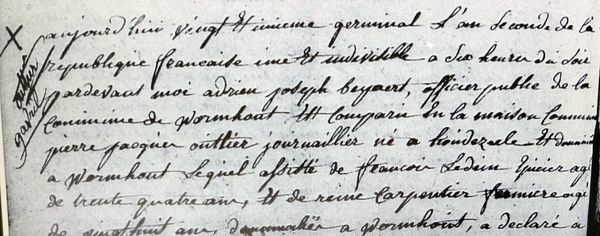 aujourd'hui vingt et unieme germinal l'an seconde de la
republique francaise une et indivisible a six heures du soir
pardevant moi adrien joseph beyaert, officier publique de la
Commune de Wormhout est comparu en la maison Commune
pierre jacques outtier journaillier né a hondezeele et
a Wormhout lequel assisté de francois epicier agé
de trente quatre ans, et de reine Carpentier fermiere agé
de vingt huit ans, a Wormhout, a declaré a
outtier
9 avril